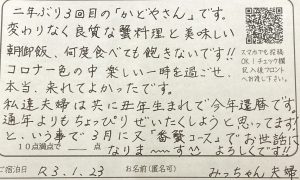 二年ぶり3回目の「かどやさん」です。
変わりなく良質な蟹料理と美味しい
朝御飯、何度食べても飽きないです!!
コロナ一色の中 楽しい一時を過ごせ、
本当、来れてよかったです。
私達夫婦は共に丑年生まれで今年還暦です。
通年よりもちょっぴりぜいたくしようと思ってます
と、いう事で3月に又"番蟹コース"でお世話に
なりま〜〜す よろしくです!!
スマホでも投稿
OK!チェック欄
記入後フロント
へお渡し下さい。
10点満点で 点
ご宿泊日 R3.1.23 お名前(匿名可) みっちゃん夫婦